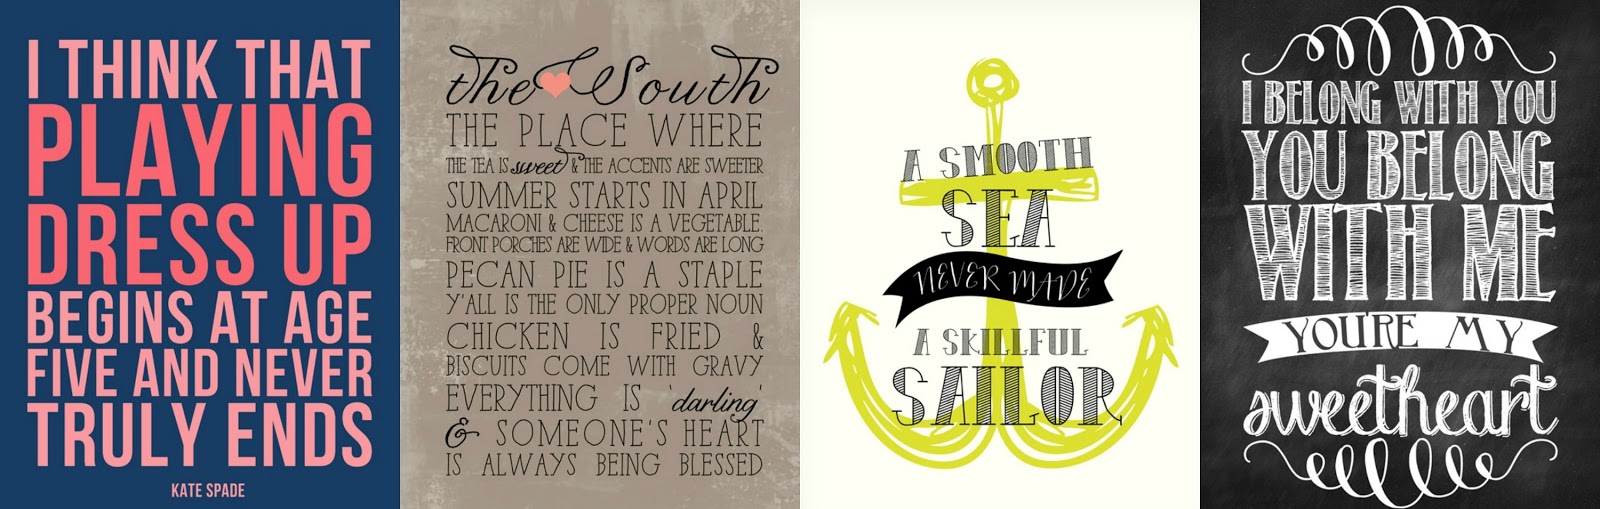 I THINK THAT
PLAYING
DRESS UP
BEGINS AT AGE
FIVE AND NEVER
TRULY ENDS
KATE SPADE
the South
THE PLACE WHERE
THE TEA IS sweet & THE ACCENTS ARE SWEETER
SUMMER STARTS IN APRIL
MACARONI & CHEESE IS A VEGETABLE.
FRONT PORCHES ARE WIDE & WORDS ARE LONG
PECAN PIE IS A STAPLE
Y'ALL IS THE ONLY PROPER NOUN
CHICKEN IS FRIED &
BISCUITS COME WITH GRAVY
EVERYTHING IS 'darling'
& SOMEONE'S HEART
IS ALWAYS BEING BLESSED
A SMOOTH
SEA
NEVER MADE
A SKILLFUL
SAILOR
I BELONG WITH YOU
YOU BELONG
WITH ME
YOU'RE MY
sweetheart